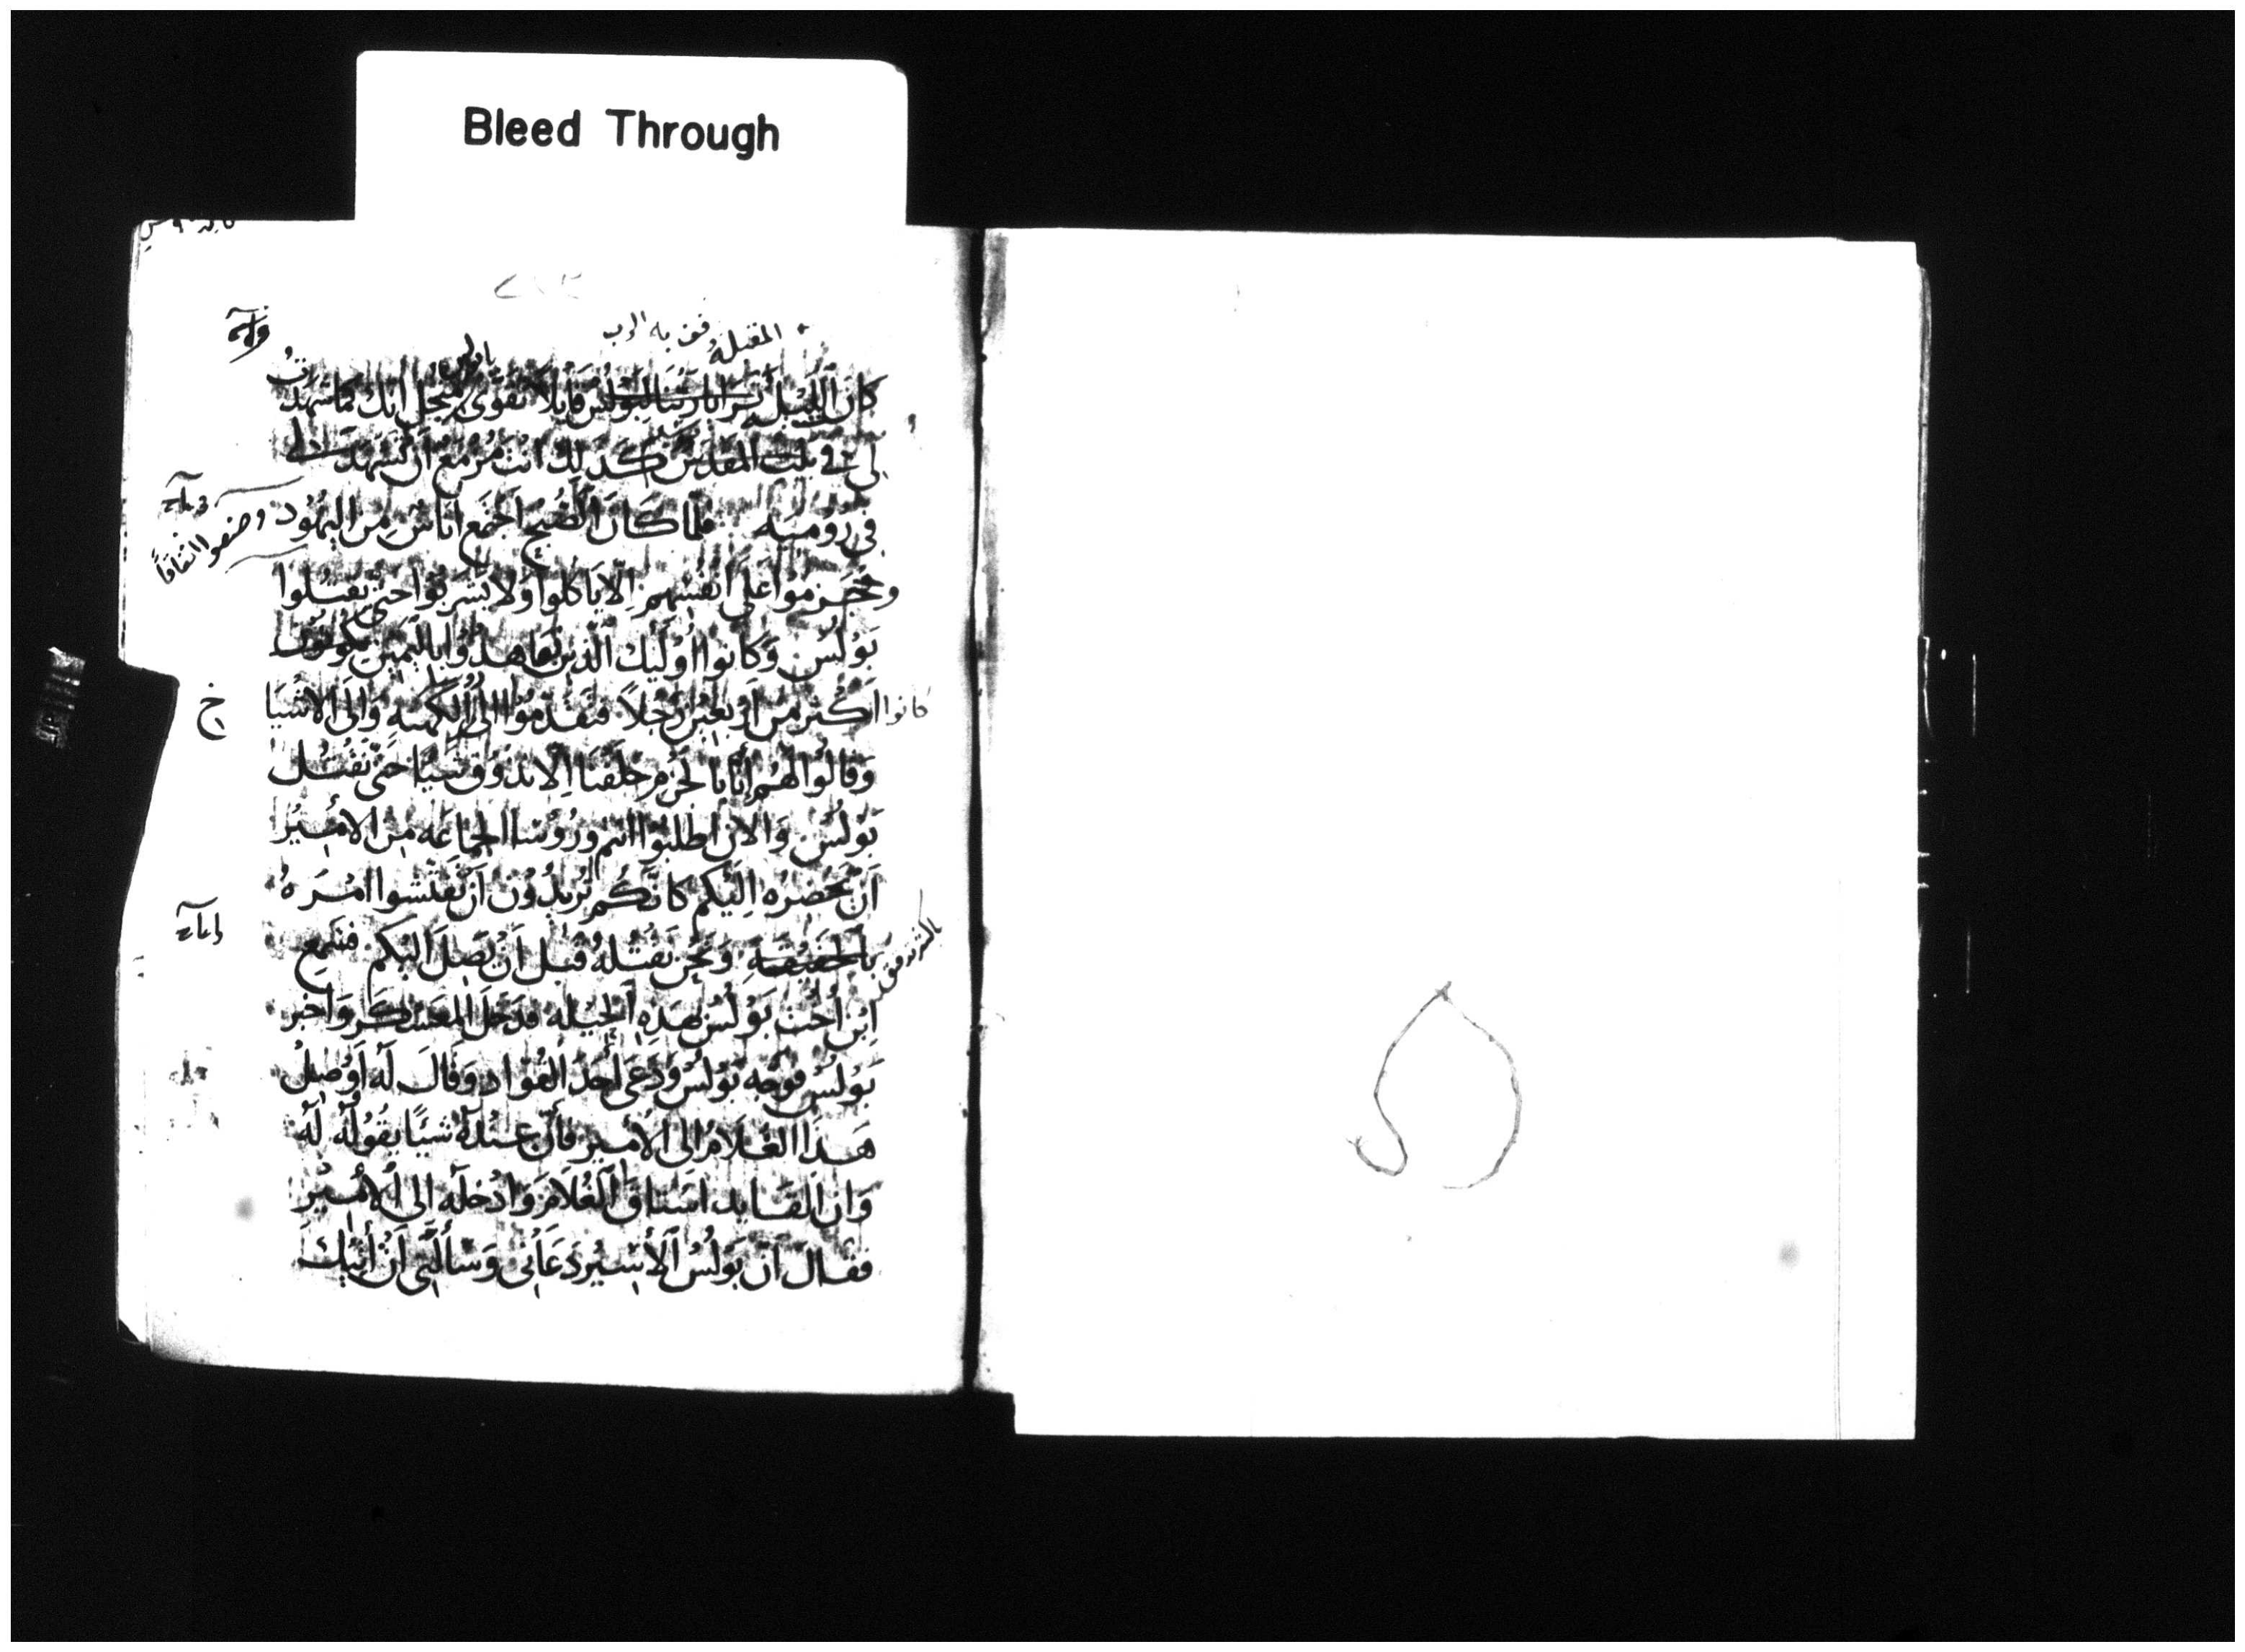 Bleed Through
المقبلة فوق به الرب
كان الليل ترايا ربنا لبولس قايلا تقوى من اجل انك كما شهدت
لي في بيت المقدس كذلك انت مزمع ان تشهد لي
في رومية فلما كان الصبح اجتمع اناس من اليهود وصنعوا اتفاقاً
وحرموا على انفسهم الا ياكلوا ولا يشربوا حتى يقتلوا
بولس وكانوا اوليك الذين تعاهدوا باليمين
كانوا اكثر من اربعين رجلاً فتقدموا الى الكهنه والى الاشياخ
وقالوا لهم انا بالحرم حلفنا الا نذوق شيا حتى نقتل
بولس والان اطلبوا انتم وروسا الجماعه من الامير
ان يحضره اليكم كانكم تريدون ان تفتشوا امره
بالحقيقه ونحن نقتله قبل ان يصل اليكم فسمع
ابن اخت بولس بهذه الحيله فدخل المعسكر واخبر
بولس فوجه بولس ودعى احد القواد وقال له اوصل
هذا الغلام الى الامير فان عنده شيا يقوله له
وان القايد استاق الغلام وادخله الى الامير
فقال ان بولس الاسير دعاني وسالني ان اتيك